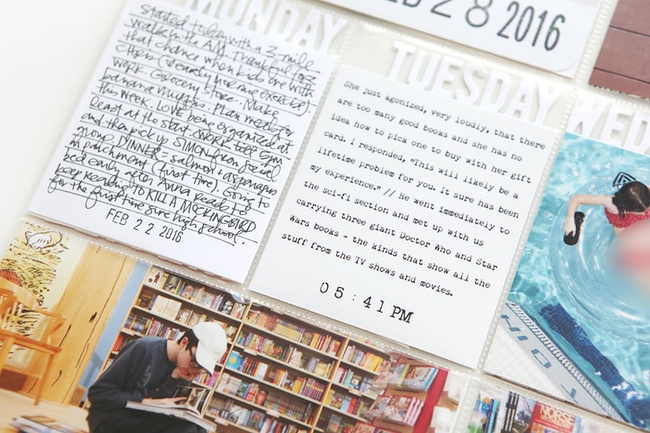 MONDAY
Started today with a mile
walk in the AM. Thankful for
that chance when kids are with
Chris (& early morning exercise).
WORK. Grocery store. Make
banana muffins. Plan meals for
this week. LOVE being organized at
least at the start. WORK till 5pm
and then pick up SIMON from social
group. DINNER = salmon + asparagus
in parchment (first time). Going to
bed early after Anna ready to
keep reading TO KILL A MOCKINGBIRD
for the first time since high school.
FEB 22 2016
FEB 28 2016
TUESDAY
She just agonized, very loudly, that there
are too many good books and she has no
idea how to pick one to buy with her gift
card. I responded, "This will likely be a
lifetime problem for you. It sure has been
my experience." // He went immediately to
the sci-fi section and met up with us
carrying three giant Doctor Who and Star
Wars books - the kinds that show all the
stuff from the TV shows and movies.
05:41 PM
WED
NORSE